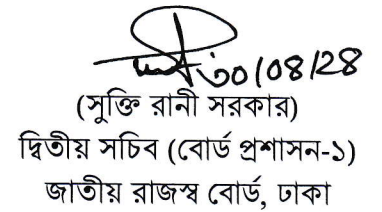 ৩০/০৪/২৪
(সুক্তি রানী সরকার)
দ্বিতীয় সচিব (বোর্ড প্রশাসন-১)
জাতীয় রাজস্ব বোর্ড, ঢাকা